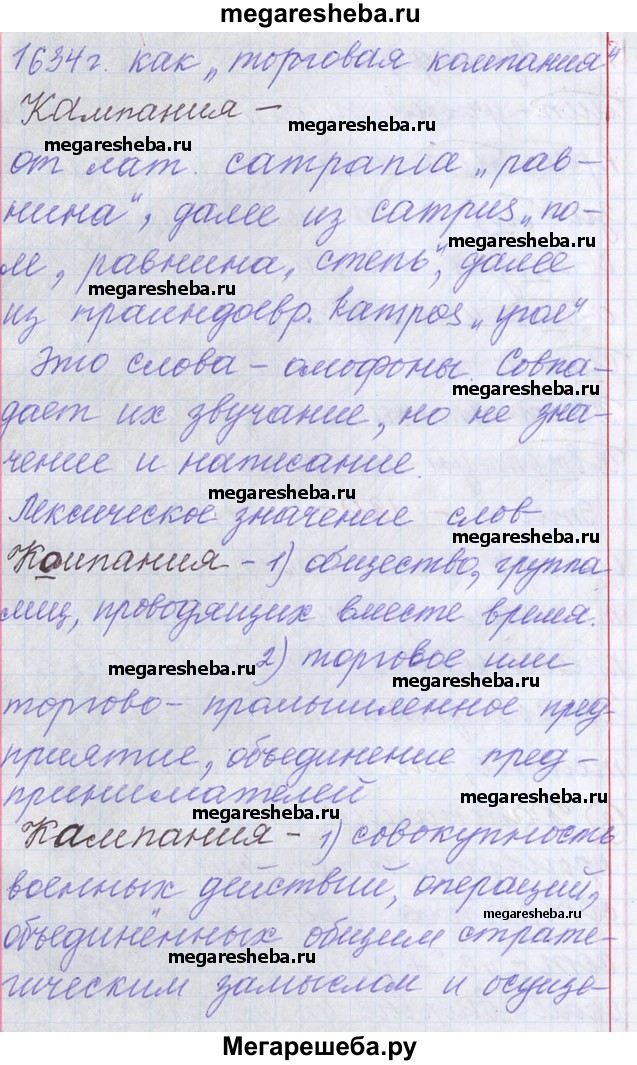 megaresheba.ru
1634 г. как „торговая компания"
Кампания –
megaresheba.ru
megaresheba.ru
от лат. campania „рав-
нина", далее из campus „по-
megaresheba.ru
ле, равнина, степь", далее
megaresheba.ru
из праиндоевр. kampos „угол"
Это слова – омофоны. Совпа-
megaresheba.ru
дает их звучание, но не зна-
чение и написание.
megaresheba.ru
Лексическое значение слов
megaresheba.ru
Компания – 1) общество, группа
лиц, проводящих вместе время.
2) торговое или
megaresheba.ru
megaresheba.ru
торгово-промышленное пред-
приятие, объединение пред-
принимателей
megaresheba.ru
megaresheba.ru
Кампания – 1) совокупность
военных действий, операций,
megaresheba.ru
объединённых общим страте-
megaresheba.ru
гическим замыслом и осуще-
Мегарешеба.ру